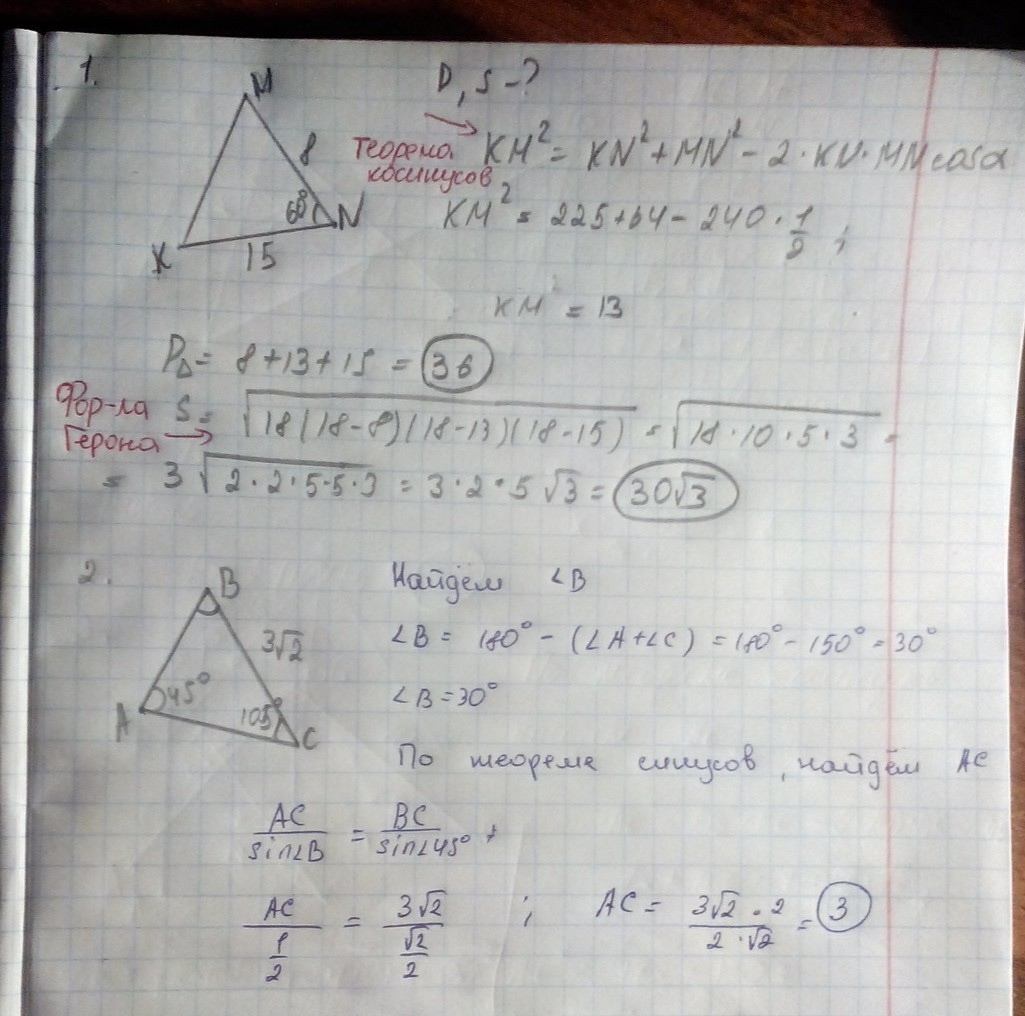 1.
P, S -?
M
8
60°
N
K
15
Теорема косинусов → KM² = KN² + MN² - 2·KN·MN cosα
KM² = 225+64 - 240 · 1/2 ;
KM = 13
P△ = 8+13+15 = 36
Фор-ла Герона → S = √18(18-8)(18-13)(18-15) = √18·10·5·3 =
= 3√2·2·5·5·3 = 3·2·5√3 = 30√3
2.
B
3√2
45°
A
105°
C
Найдём ∠B
∠B = 180° - (∠A+∠C) = 180° - 150° = 30°
∠B = 30°
По теореме синусов, найдём AC
AC/sin∠B = BC/sin∠45°
AC/(1/2) = 3√2/(√2/2) ; AC = 3√2·2/2·√2 = 3